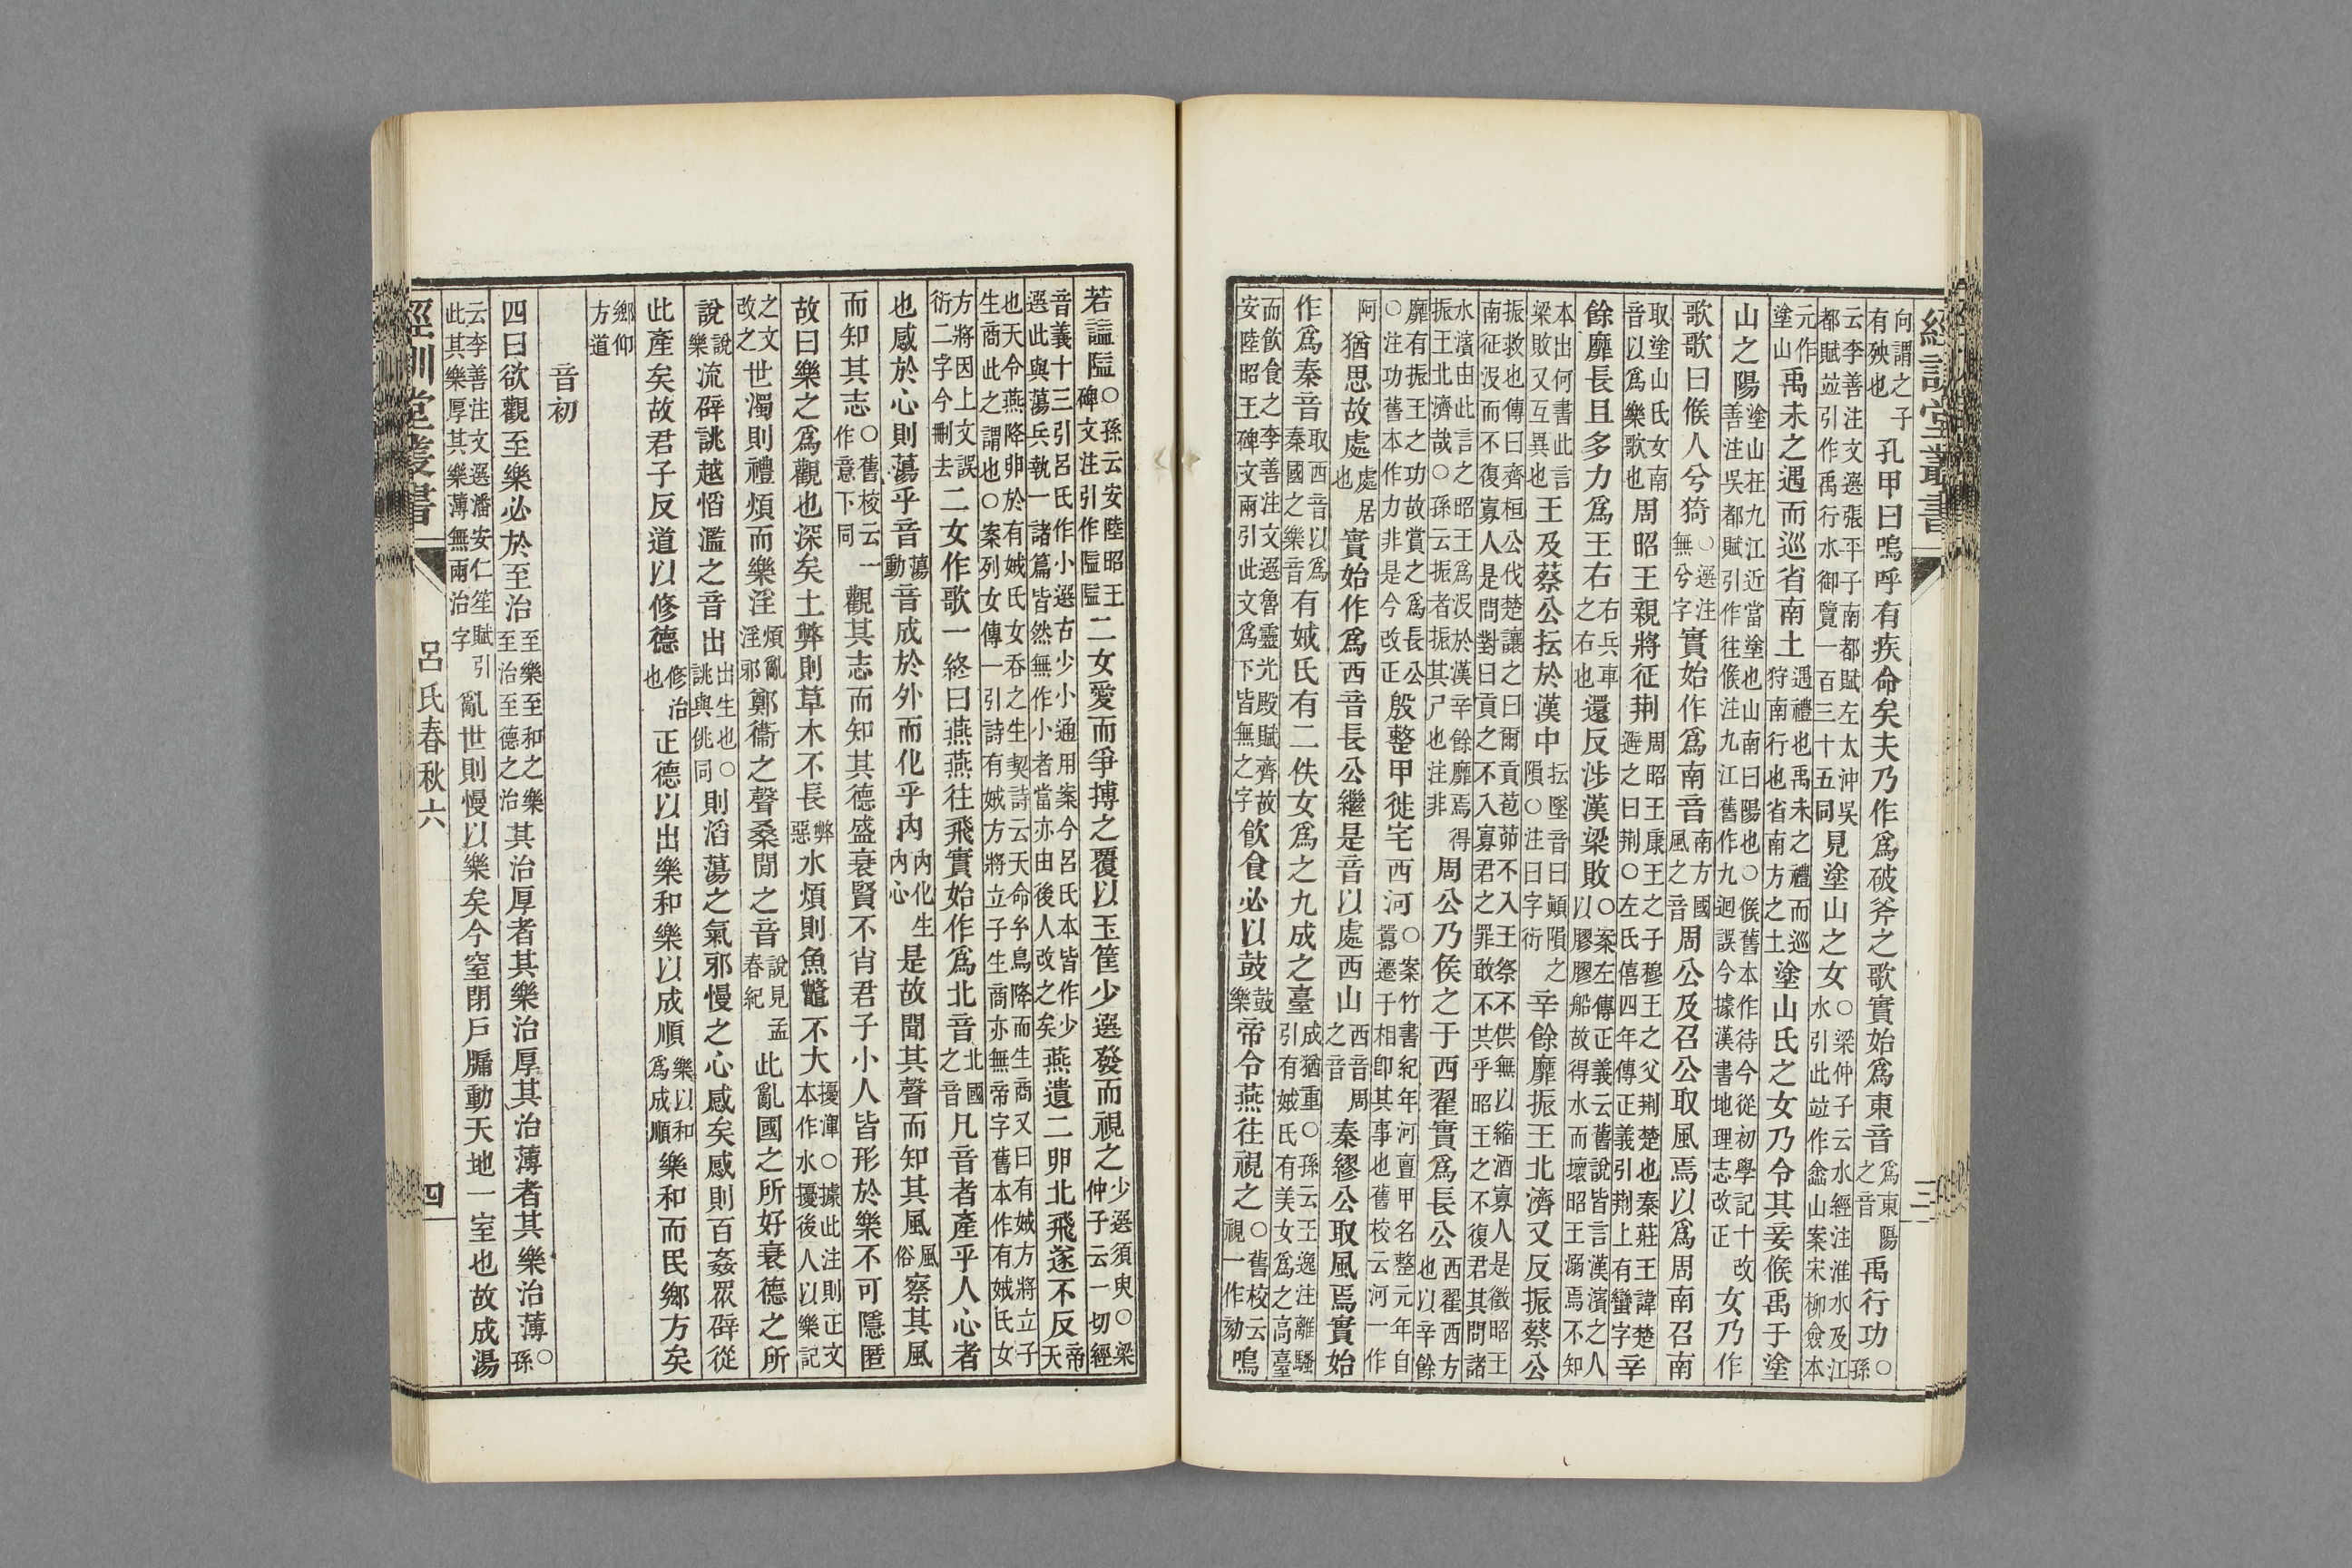 經訓堂叢書 三
向謂之子有殃也孔甲曰嗚呼有疾命矣夫乃作爲破斧之歌實始爲東音爲東陽之音禹行功○孫
云李善注文選張平子南都賦左太沖吳都賦竝引作禹行水御覽一百三十五同見塗山之女○梁仲子云水經注淮水及江水引此竝作嵞山案宋柳僉本
元作塗山禹未之遇而巡省南土遇禮也禹未之禮而巡狩南行也省南方之土塗山氏之女乃令其妾候禹于塗
山之陽塗山在九江近當塗也山南曰陽也○候舊本作待今從初學記十改善注吳都賦引作往候注九江舊作九迴誤今據漢書地理志改正女乃作
歌歌曰候人兮猗○選注無兮字實始作爲南音南方國風之音周公及召公取風焉以爲周南召南
取塗山氏女南音以爲樂歌也周昭王親將征荆周昭王康王之子穆王之父荆楚也秦莊王諱楚避之曰荆○左氏僖四年傳正義引荆上有蠻字辛
餘靡長且多力爲王右右兵車之右也還反涉漢梁敗○案左傳正義云舊說皆言漢濱之人以膠膠船故得水而壞昭王溺焉不知
本出何書此言梁敗又互異也王及蔡公抎於漢中抎墜音曰顚隕之隕○注曰字衍辛餘靡振王北濟又反振蔡公
振救也傳曰齊桓公伐楚讓之曰爾貢苞茆不入王祭不供無以縮酒寡人是徵昭王南征沒而不復寡人是問對曰貢之不入寡君之罪敢不共乎昭王之不復君其問諸
水濱由此言之昭王爲沒於漢辛餘靡焉得振王北濟哉○孫云振者振其尸也注非周公乃侯之于西翟實爲長公西翟西方也以辛餘
靡有振王之功故賞之爲長公○注功舊本作力非是今改正殷整甲徙宅西河○案竹書紀年河亶甲名整元年自囂遷于相卽其事也舊校云河一作
阿猶思故處處居也實始作爲西音長公繼是音以處西山西音周之音秦繆公取風焉實始
作爲秦音取西音以爲秦國之樂音有娀氏有二佚女爲之九成之臺成猶重○孫云王逸注離騷引有娀氏有美女爲之高臺
而飲食之李善注文選魯靈光殿賦齊故安陸昭王碑文兩引此文爲下皆無之字飲食必以鼓鼓樂帝令燕往視之○舊校云視一作劾鳴
若諡隘○孫云安陸昭王碑文注引作隘隘二女愛而爭搏之覆以玉筐少選發而視之少選須臾○梁仲子云一切經
音義十三引呂氏作小選古少小通用案今呂氏本皆作少選此與蕩兵執一諸篇皆然無作小者當亦由後人改之矣燕遺二卵北飛遂不反帝天
也天令燕降卵於有娀氏女吞之生契詩云天命玄鳥降而生商又曰有娀方將立子生商此之謂也○案列女傳一引詩有娀方將立子生商亦無帝字舊本作有娀氏女
方將因上文誤衍二字今刪去二女作歌一終曰燕燕往飛實始作爲北音北國之音凡音者產乎人心者
也感於心則蕩乎音蕩動音成於外而化乎內內化生內心是故聞其聲而知其風風俗察其風
而知其志○舊校云一作意下同觀其志而知其德盛衰賢不肖君子小人皆形於樂不可隱匿
故曰樂之爲觀也深矣土弊則草木不長弊惡水煩則魚鼈不大擾渾○據此注則正文本作水擾後人以樂記
之文改之世濁則禮煩而樂淫煩亂淫邪鄭衞之聲桑閒之音說見孟春紀此亂國之所好衰德之所
說說樂流辟誂越慆濫之音出出生也○誂與佻同則滔蕩之氣邪慢之心感矣感則百姦衆辟從
此產矣故君子反道以修德修治也正德以出樂和樂以成順樂以和爲成順樂和而民鄉方矣
鄉仰方道
音初
四曰欲觀至樂必於至治至樂至和之樂至治至德之治其治厚者其樂治厚其治薄者其樂治薄○孫
云李善注文選潘安仁笙賦引此其樂厚其樂薄無兩治字亂世則慢以樂矣今窒閉戶牖動天地一室也故成湯
經訓堂叢書 呂氏春秋六 四